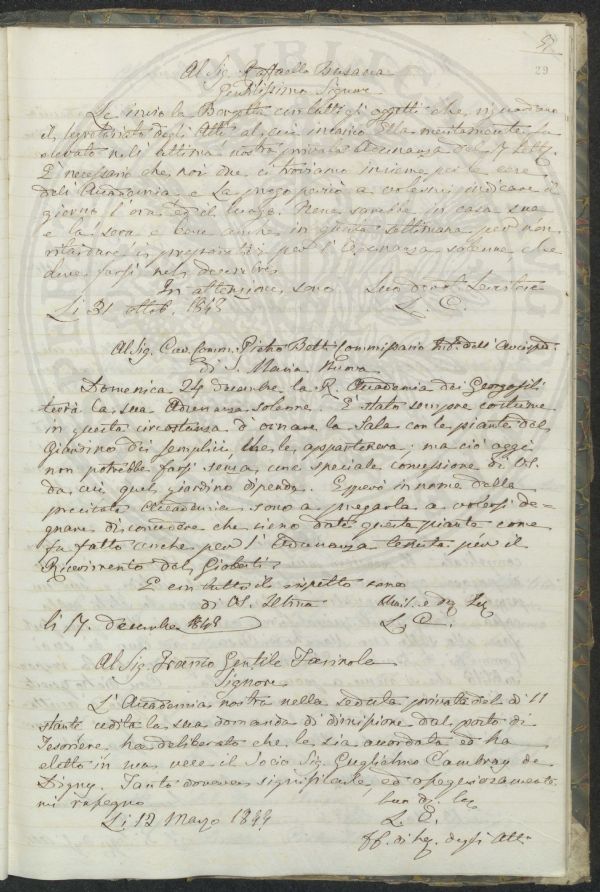 57
29
Al Sig. Raffaello Busacca
Gentilissimo Signore
Le invio la Borsetta con tutti gli oggetti che riguardano
il Segretariato degli Atti al cui incarico Ella meritamente fu
elevato nell'ultima nostra privata Adunanza del 17 Sett.
È necessario che noi due ci troviamo insieme per le cose
dell'Accademia e La prego perciò a volermi indicare il
giorno l'ora ed il luogo. Verrei in casa sua
e la sera e bene anche in questa settimana per non
ritardare i preparativi per l'Adunanza solenne, che
deve farsi nel decembre.
In attenzione sono Suo devot. Servitore
Li 31 ottob. 1848 L. C.
Al Sig. Cav. Comm. Pietro Betti Commissario dell'Arcisped.
di S. Maria Nuova
Domenica 24 decembre la R. Accademia dei Georgofili
terrà la sua Adunanza solenne. È stato sempre costume
in questa circostanza d'ornare la Sala con le piante del
Giardino dei Semplici, che le apparteneva; ma ciò oggi
non potrebbe farsi senza una speciale concessione di VS.
da cui quel giardino dipende. Epperò in nome della
precitata Accademia sono a pregarla a volersi de=
gnare di concedere che sieno date queste piante come
fu fatto anche per l'Adunanza tenuta per il
Ricevimento del Gioberti.
E con tutto il rispetto sono
di VS. Ill.ma Umil. e dev. Ser
li 17. decembre 1848 L. C.
Al Sig. Franco Gentile Farinola
Signore
L'Accademia nostra nella seduta privata del dì 11
stante udita la sua domanda di dimissione dal posto di
Tesoriere ha deliberato che le sia accordata ed ha
eletto in sua vece il Socio Sig. Guglielmo Cambray de
Digny. Tanto doveva significarle, ed ossequiosamente
mi rassegno Suo
Li 12 Marzo 1849 L. C.
ff. di Seg. degli Atti